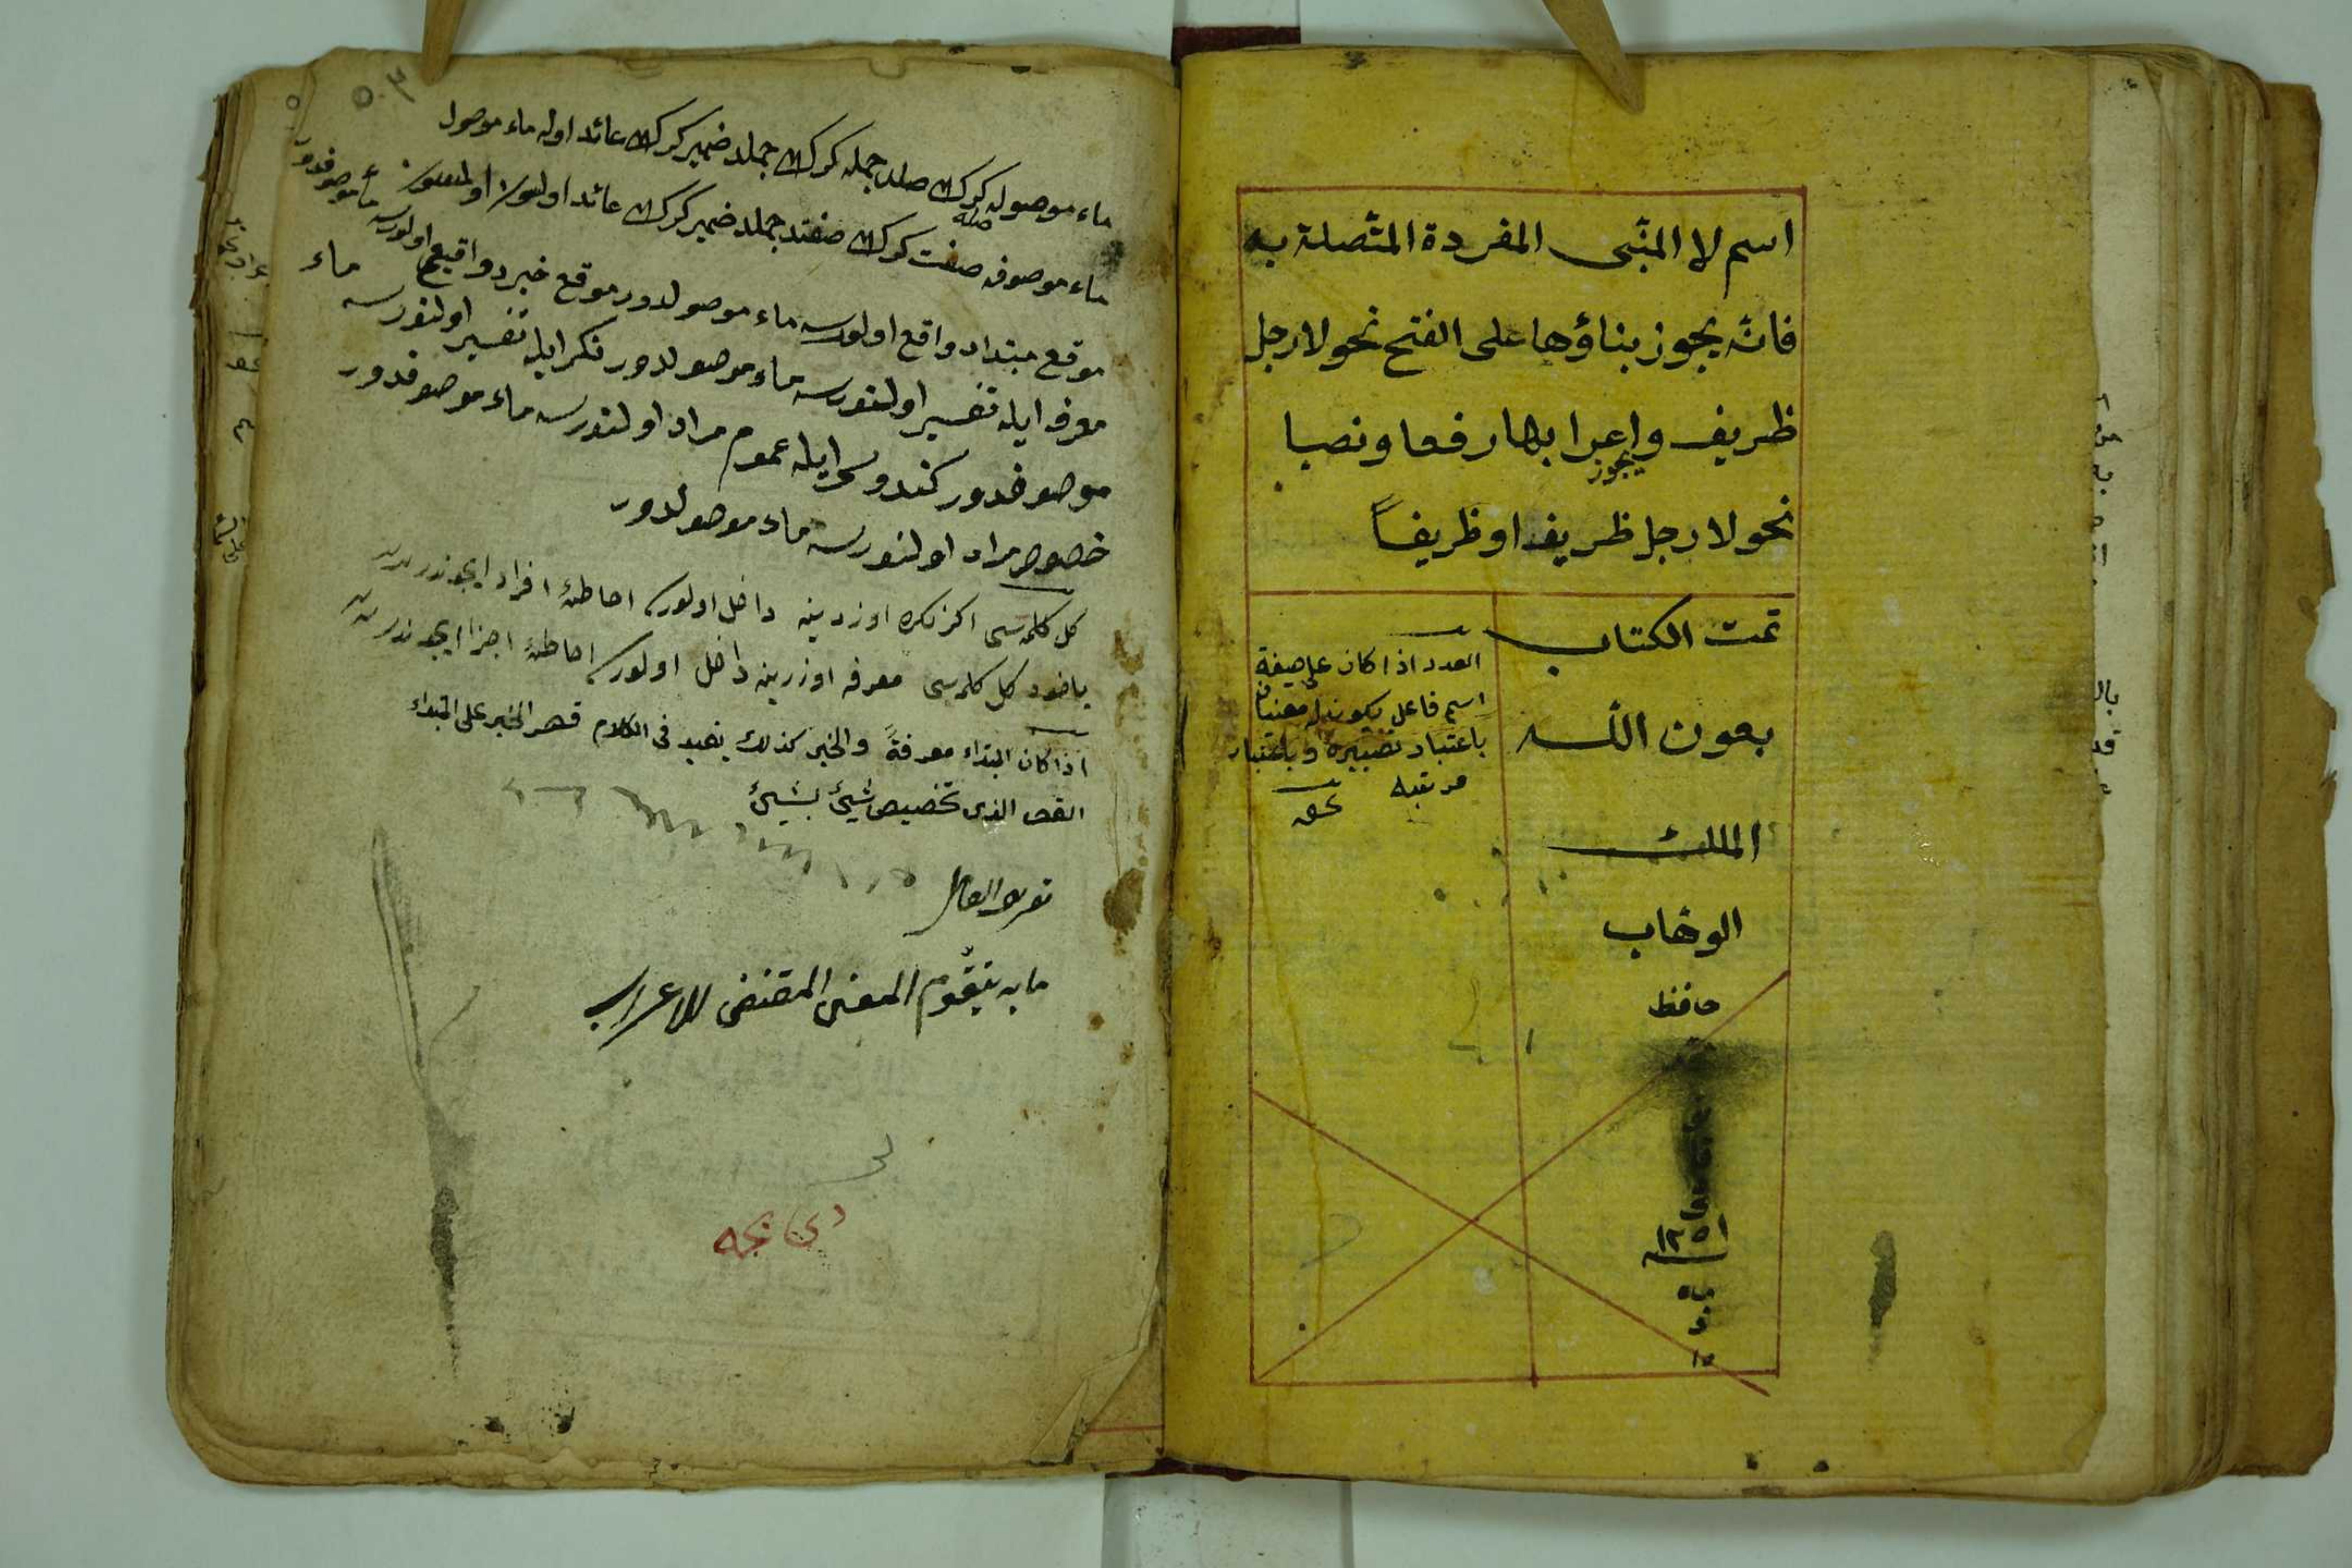 اسم لا المبنى المفردة المتصلة به
فانه يجوز بناؤها على الفتح نحو لا رجل
ظريف واعرابها رفعا ونصبا
يجوز
نحو لا رجل ظريف او ظريفاً
تمت الكتاب
بعون الله
الملك
الوهاب
حافظ
العدد اذا كان على صيغة
اسم فاعل يكون له معنيان
باعتبار تصييره وباعتبار
مرتبته
ماء موصوله كرك صله جمله كرك جمله ضمير كرك عائد اوله ماء موصول
صله
ماء موصوفه صفت كرك صفتده جمله ضمير كرك عائد اولسون اولمسون
موقع مبتداده واقع اولورسه ماء موصولدور موقع خبرده واقع اولورسه ماء موصوفدور
معرفه ايله تفسير اولنورسه ماء موصولدور نكره ايله تفسير اولنورسه ماء
موصوفدور كندوسى ايله عموم مراد اولنورسه ماء موصوفدور
خصوص مراد اولنورسه ماء موصولدور
كل كلمه سى اكر نكره اوزرينه داخل اولورسه احاطهٔ افراد ايچوندر
ياخود كل كلمه سى معرفه اوزرينه داخل اولورسه احاطهٔ اجزا ايچوندر
اذا كان المبتداء معرفةً والخبر كذلك يفيد فى الكلام قصر الخبر على المبتداء
القصر الذى تخصيص شيئ بشيئ
تعريف العامل
ما به يتقوّم المعنى المقتضى للاعراب